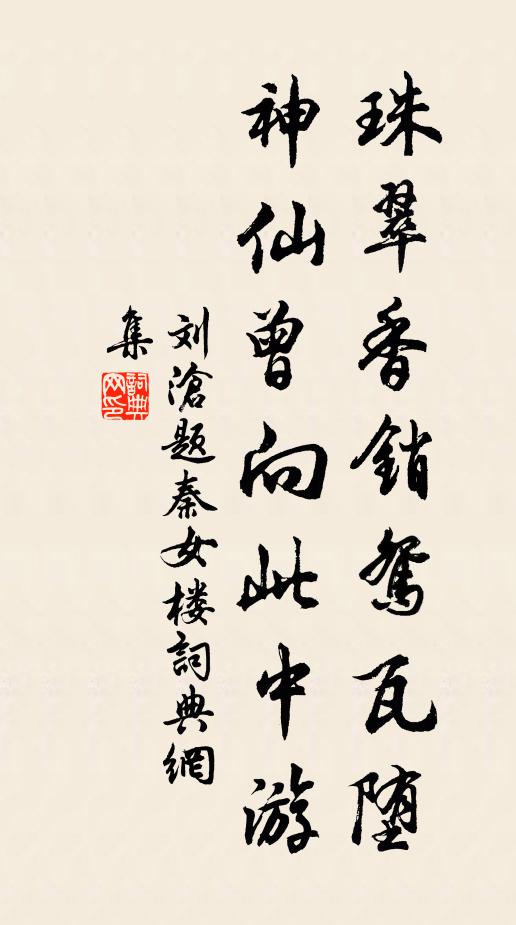 珠翠香销鸳瓦堕
神仙曾向此中游
刘沧题秦女楼詞典網
集
詞典網印